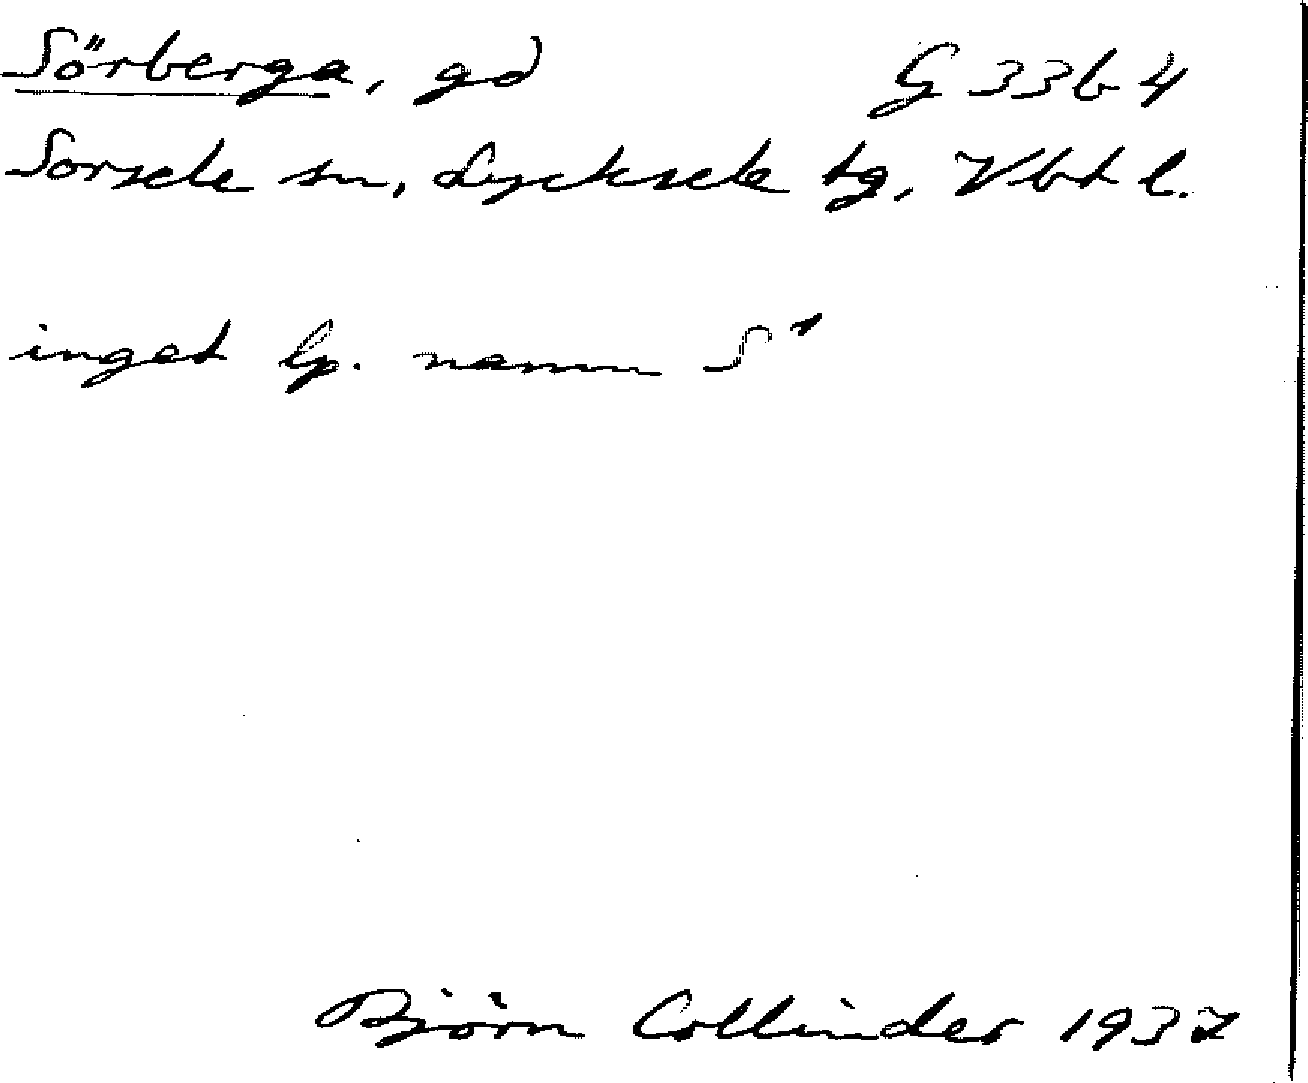 Sörberga, gd G 33b 4
Sorsele sn, Lycksele tg, Vbt l.
inget lp. namn S¹
Björn Collinder 1937